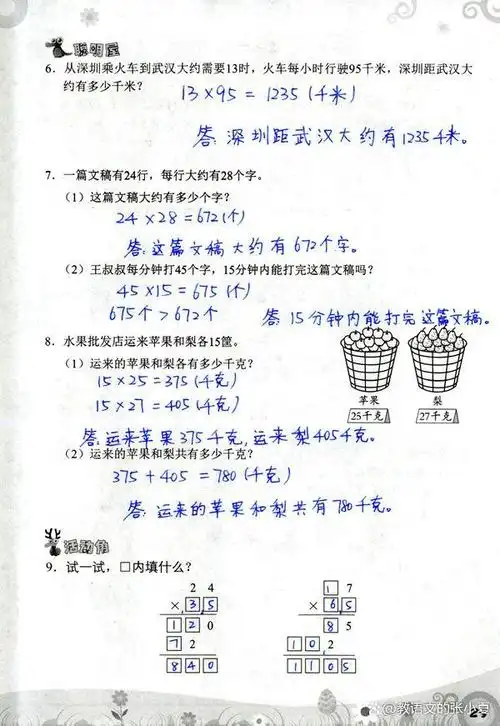 聪明屋
6. 从深圳乘火车到武汉大约需要13时，火车每小时行驶95千米，深圳距武汉大
约有多少千米？
13×95=1235(千米)
答:深圳距武汉大约有1235千米。
7. 一篇文稿有24行，每行大约有28个字。
(1) 这篇文稿大约有多少个字？
24×28=672(个)
答:这篇文稿大约有672个字。
(2) 王叔叔每分钟打45个字，15分钟内能打完这篇文稿吗？
45×15=675(个)
675个>672个
答:15分钟内能打完这篇文稿。
8. 水果批发店运来苹果和梨各15筐。
(1) 运来的苹果和梨各有多少千克？
15×25=375(千克)
15×27=405(千克)
苹果 梨
25千克 27千克
答:运来苹果375千克,运来梨405千克。
(2) 运来的苹果和梨共有多少千克？
375+405=780(千克)
答:运来的苹果和梨共有780千克。
活动角
9. 试一试，□内填什么？
2 4 1 7
× 3 5 × 6 5
1 2 0 8 5
7 2 1 0 2
8 4 0 1 1 0 5
@教语文的张小良